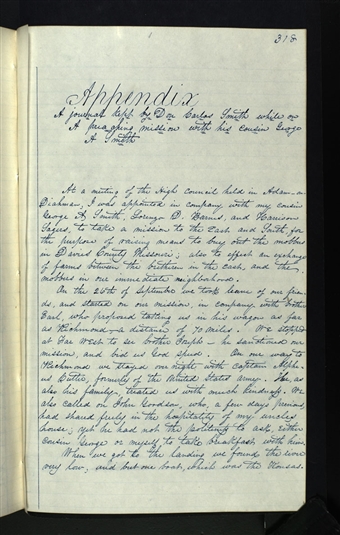 318
Appendix
A journal kept by Don Carlos Smith while on
A preaching mission with his cousin George
A Smith
At a meeting of the High council held in Adam-on-
Diahman, I was appointed in company, with my cousin
George A Smith, Lorenzo D. Barnes, and Harrison
Sagers, to take a mission to the East and South, for
the purpose of raising means to buy out the mobbers
in Davies County Missouri; also to effect an exchange
of farms between the brethren in the east, and the
mobbers in our immediate neighborhood.
On the 26th of September we took leave of our frien-
ds, and started on our mission, in company with Brother
Earl, who proposed taking us in his waggon as far
as Richmond a distance of 70 miles. We stopped
at Far West to see brother Joseph - he sanctioned our
mission, and bid us God speed. On our way to
Richmond we stayed over night with Captain Alphe-
us Cutler, formerly of the United States army. He as
also his family, treated us with much kindness. We
also called on John Goodson, who, a few days previous
had shared freely in the hospitality of my uncles
house; yet he had not the politeness to ask, either
cousin George or myself to take breakfast with him.
When we got to the landing we found the river
very low, and but one boat, which was the Kansas.